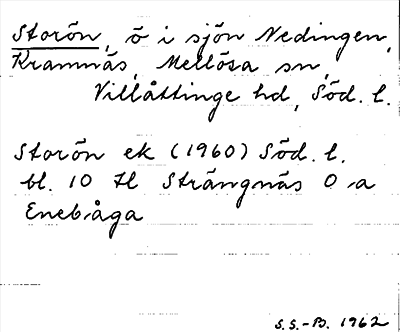 Storön, ö i sjön Nedingen,
Kramnäs, Mellösa sn,
Villåttinge hd, Söd. l.
Storön ek (1960) Söd. l.
bl. 10 tl Strängnäs O .a
Eneb.åga
S.S.-B. 1962